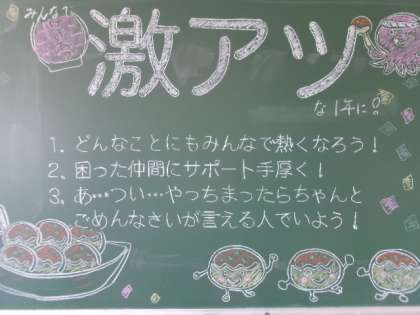 みんなで
激アツ
な1年に!!
1、どんなことにもみんなで熱くなろう!
2、困った仲間にサポート手厚く!
3、あ…つい…やっちまったらちゃんと
ごめんなさいが言える人でいよう!